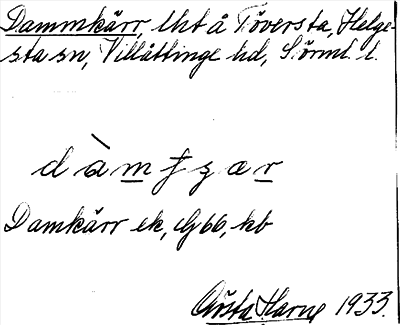 Dammkärr, lht å Töversta, Helge-
sta sn, Villåttinge hd, Sörml. l.
dàmʃʒær
Damkärr ek, Gj 66, kb
Gösta Harne 1933.